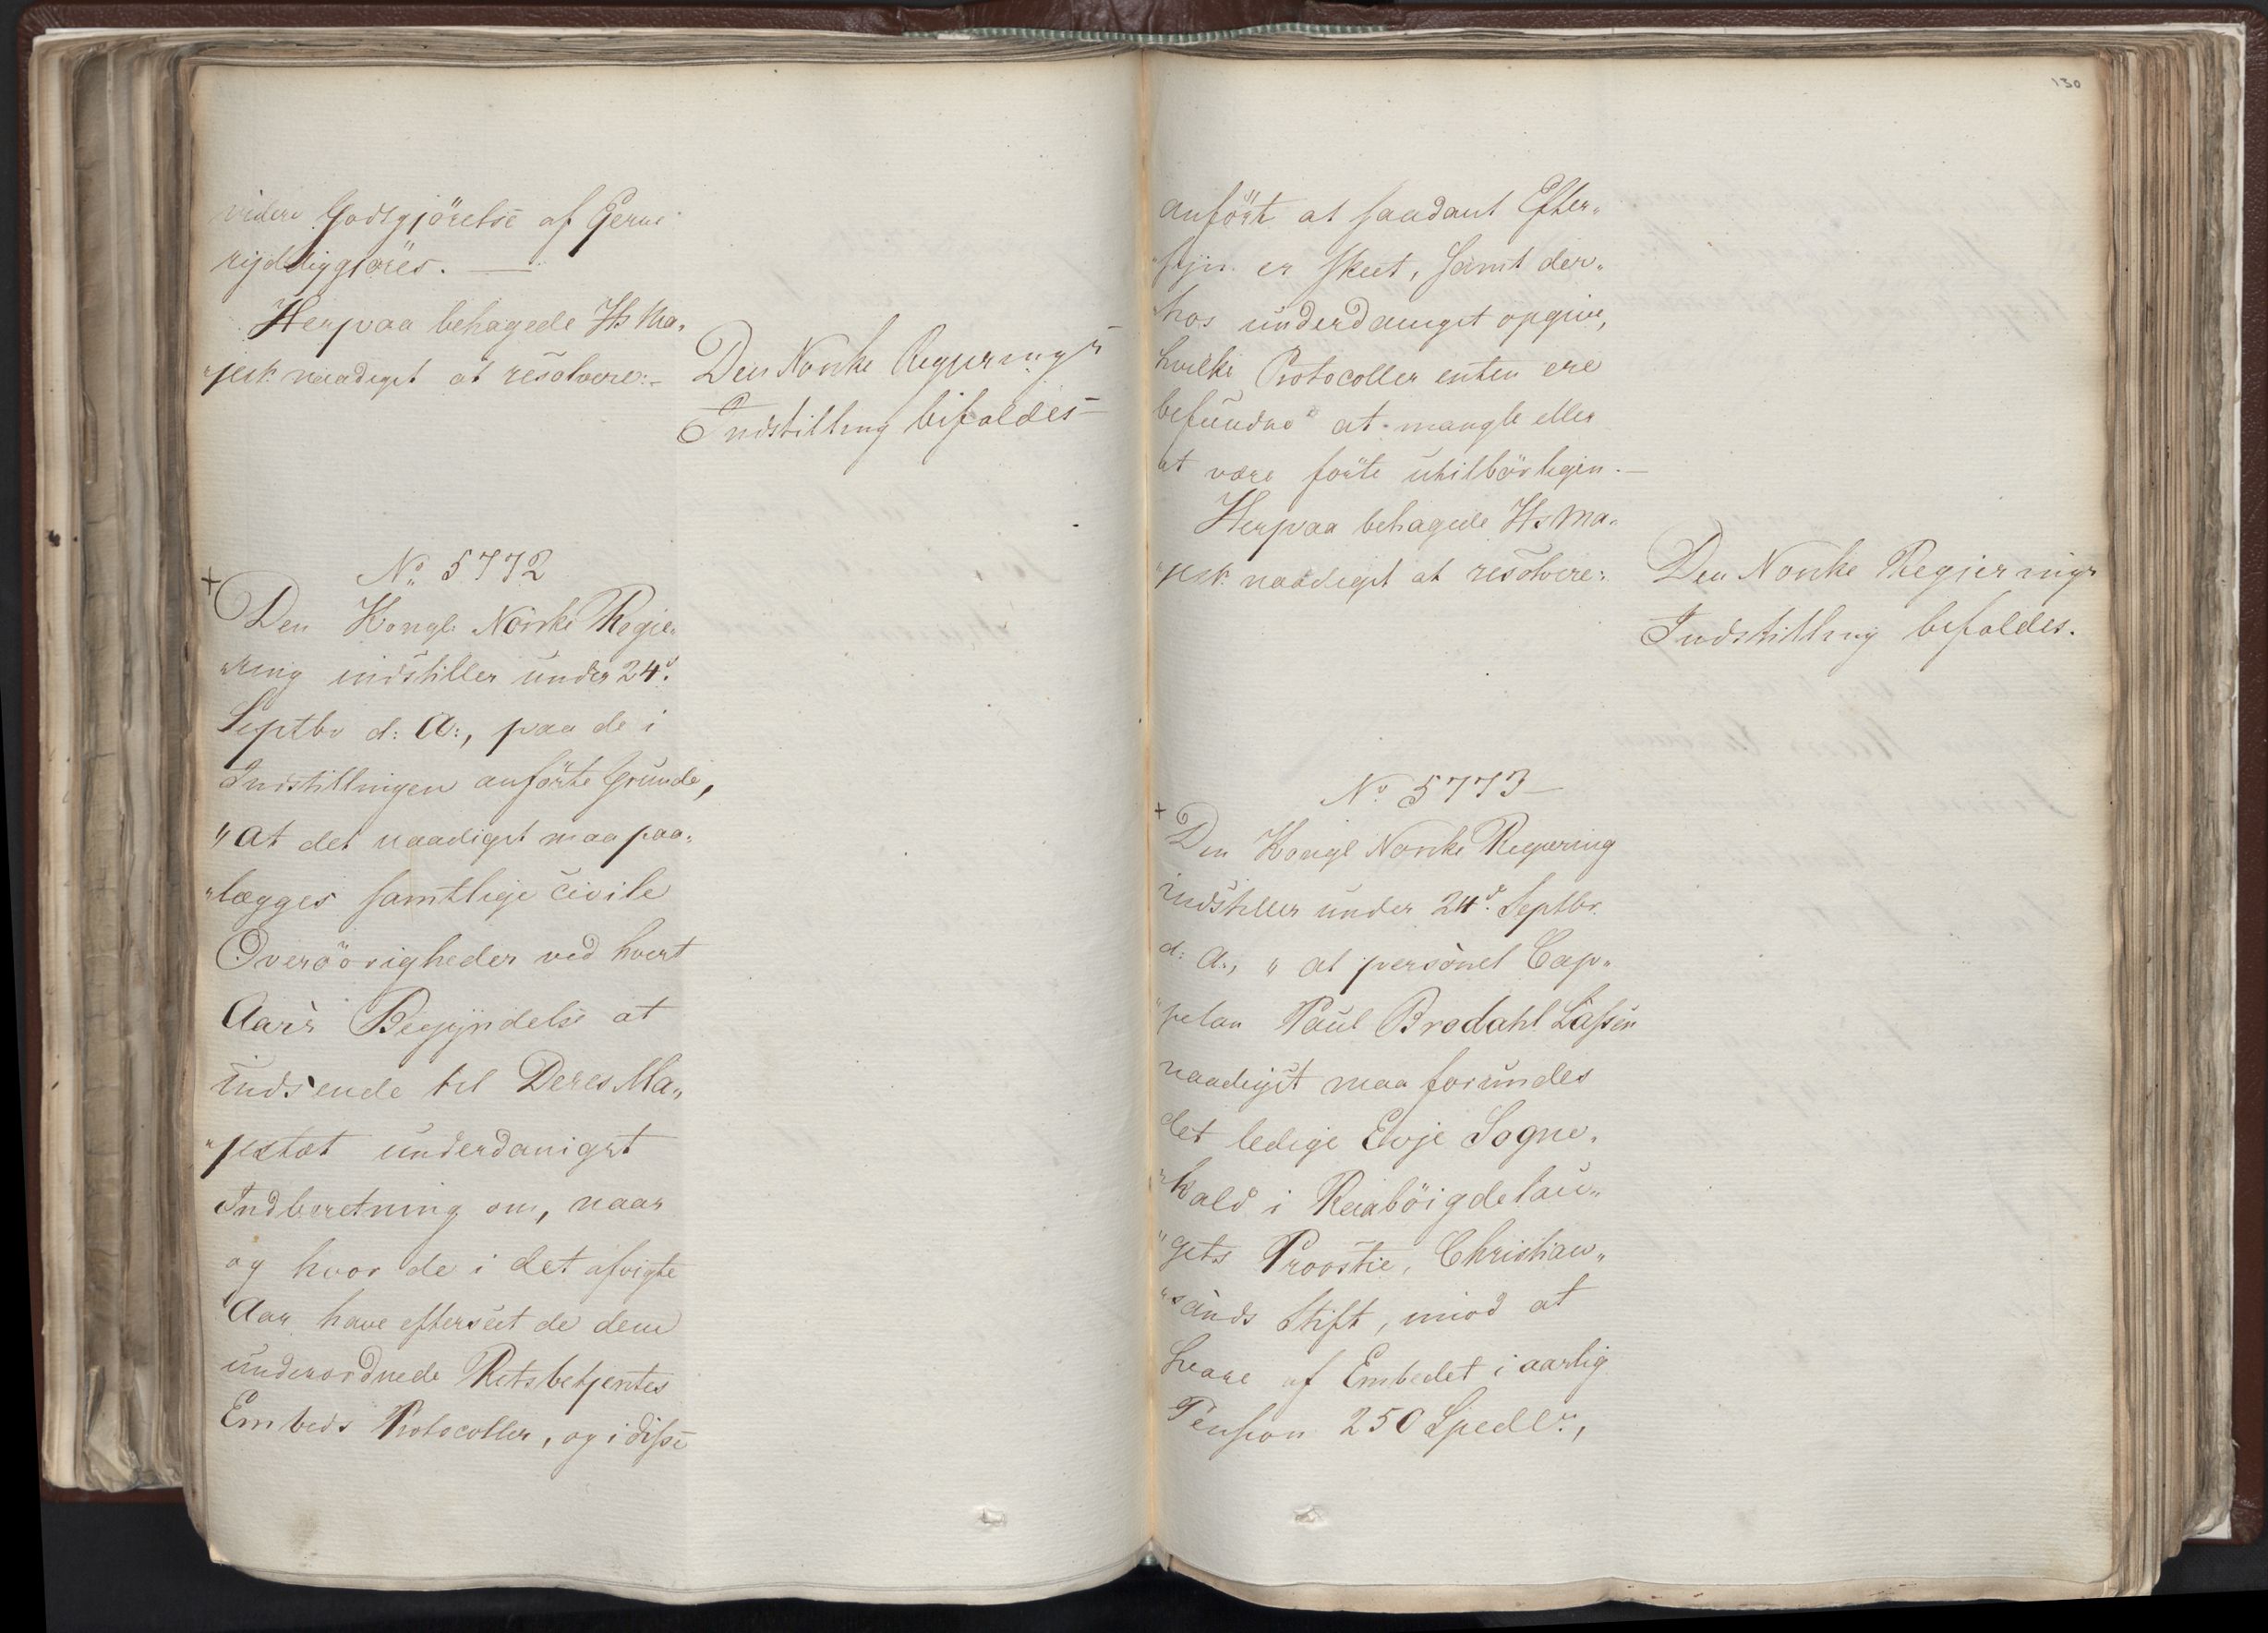 videre Godtgjörelse af Gerne
rigtiggjöres. —
Herpaa behagede Hs Ma„
„jest: naadigst at resolvere:-
Den Norske Regjerings
Indstilling bifaldes —
No. 5772
+ Den Kongl: Norske Regje„
„ring indstiller under 24d
Septbr d: A:, paa de i
Indstillingen anförte Grunde,
„at det naadigst maa paa„
„lægges samtlige civile
Overöörigheder ved hvert
Aars Begyndelse at
indsende til Deres Ma„
„jestæt underdanigst
Indberetning om, naar
og hvor de i det afvigte
Aar have efterseet de dem
underordnede Retsbetjentes
Embeds Protocoller, og i disse
130
anfört at saadant Efter„
„syn er skeet, samt der„
hos underdanigst opgive,
hvilke Protocoller enten ere
befundne at mangle eller
at være förte utilbörligen. —
Herpaa behagede Hs Ma„
„jest: naadigst at resolvere:
Den Norske Regjerings
Indstilling bifaldes.
No. 5773 —
+ Den Kongl Norske Regjering
indstiller under 24d. Septbr.
d: A:, „at personel Cap„
„pelan Paul Brodahl Lassen
naadigst maa forundes
det ledige Evje Sogne„
„kald i Raaböigdelau„
„gets Proostie, Christian„
„sands Stift, imod at
svare af Embedet i aarlig
Pension 250 Spedlr.,